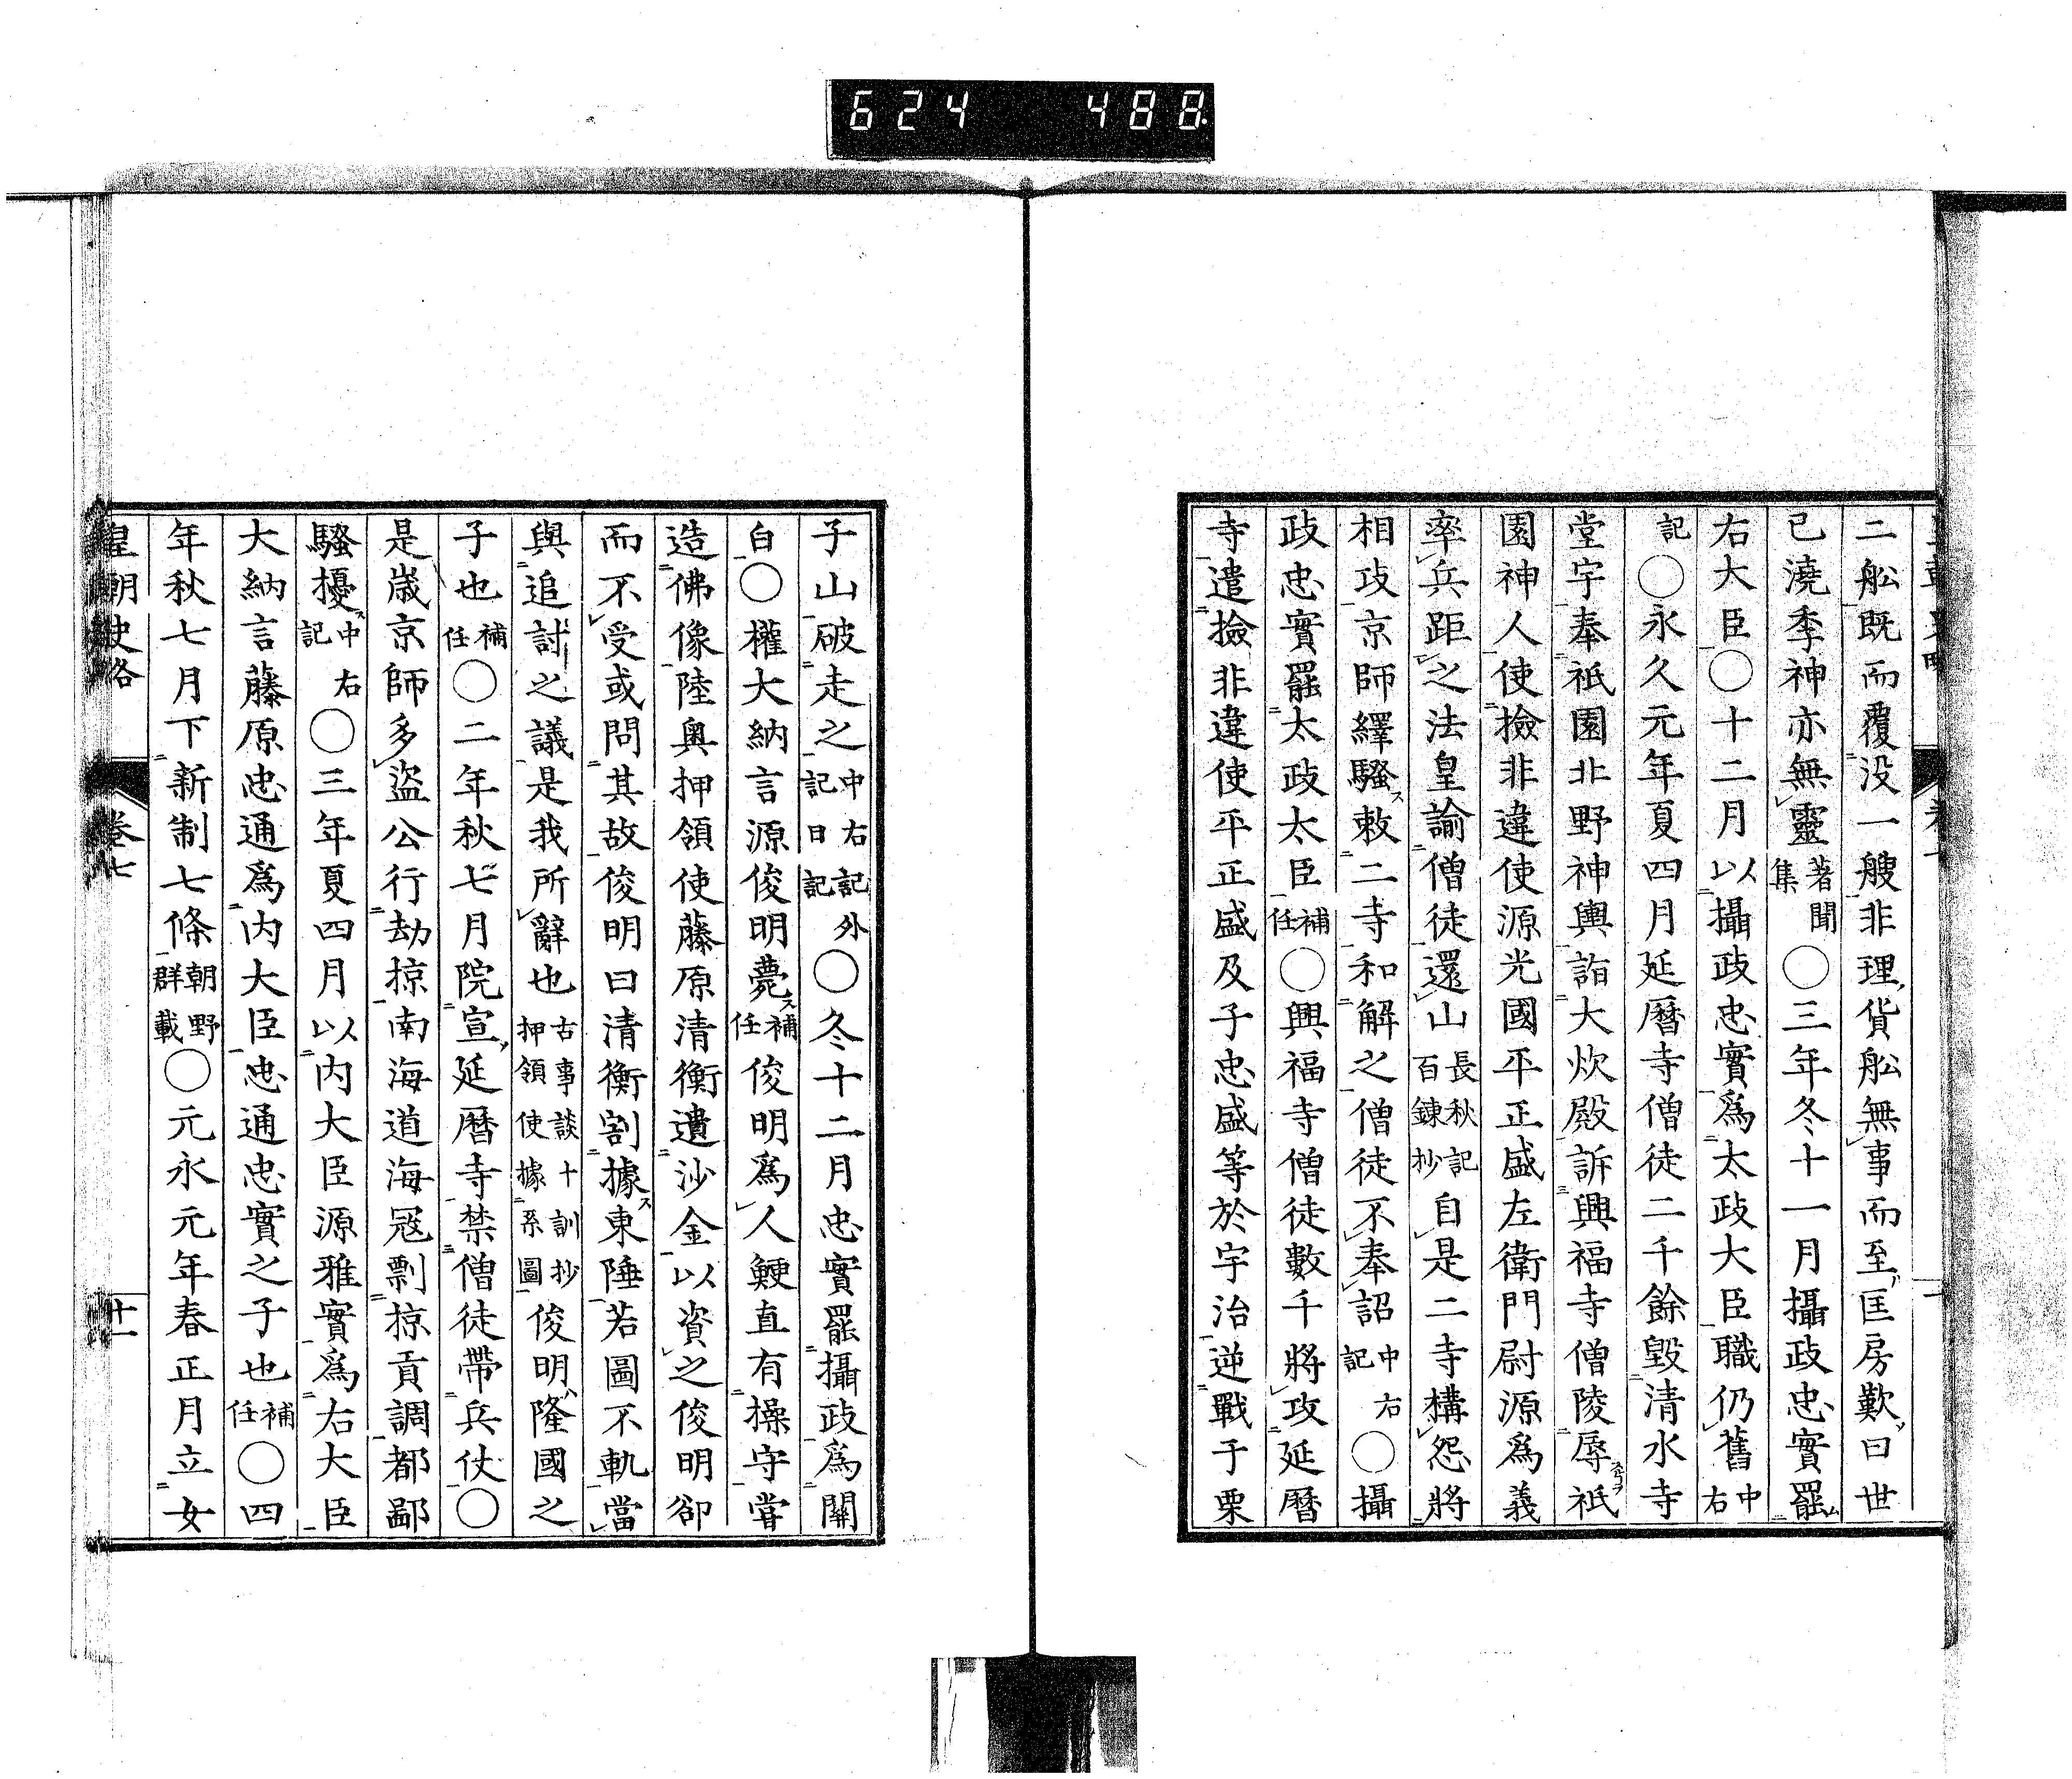 624 488
二舩既而覆没一艘非理貨舩無事而至匡房歎曰世
已澆季神亦無靈著聞集○三年冬十一月攝政忠實罷
右大臣○十二月以攝政忠實爲太政大臣職仍舊中右
記○永久元年夏四月延曆寺僧徒二千餘毀清水寺
堂宇奉祇園北野神輿詣大炊殿訴興福寺僧陵辱祇
園神人使撿非違使源光國平正盛左衛門尉源爲義
率兵距之法皇諭僧徒還山長秋記百鍊抄自是二寺構怨將
相攻京師繹騷敕二寺和解之僧徒不奉詔中右記○攝
政忠實罷太政太臣補任○興福寺僧徒數千將攻延曆
寺遣撿非違使平正盛及子忠盛等於宇治逆戰于栗
子山破走之中右記外記日記○冬十二月忠實罷攝政爲關
白○權大納言源俊明薨補任俊明爲人鯁直有操守嘗
造佛像陸奧押領使藤原清衡遺沙金以資之俊明卻
而不受或問其故俊明曰清衡割據東陲若圖不軌當
與追討之議是我所辭也古事談十訓抄押領使據系圖俊明隆國之
子也補任○二年秋七月院宣延曆寺禁僧徒帶兵仗○
是歲京師多盜公行劫掠南海道海冦剽掠貢調都鄙
騷擾中右記○三年夏四月以内大臣源雅實爲右大臣
大納言藤原忠通爲内大臣忠通忠實之子也補任○四
年秋七月下新制七條朝野群載○元永元年春正月立女
皇朝史略 卷七 十一